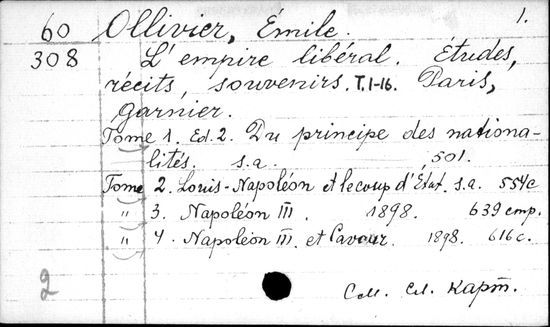 1.
60 Ollivier, Émile.
308 L'empire libéral. Études,
récits, souvenirs. T.1-16. Paris,
Garnier.
Tome 1. Ed. 2. Du principe des nationa-
lités. s.a. , 501.
Tome 2. Louis-Napoléon et le coup d'État. s.a. 554c
" 3. Napoléon III. 1898. 639 стр.
" 4. Napoléon III. et Cavour. 1898. 616 с.
2
См. сл. карт.